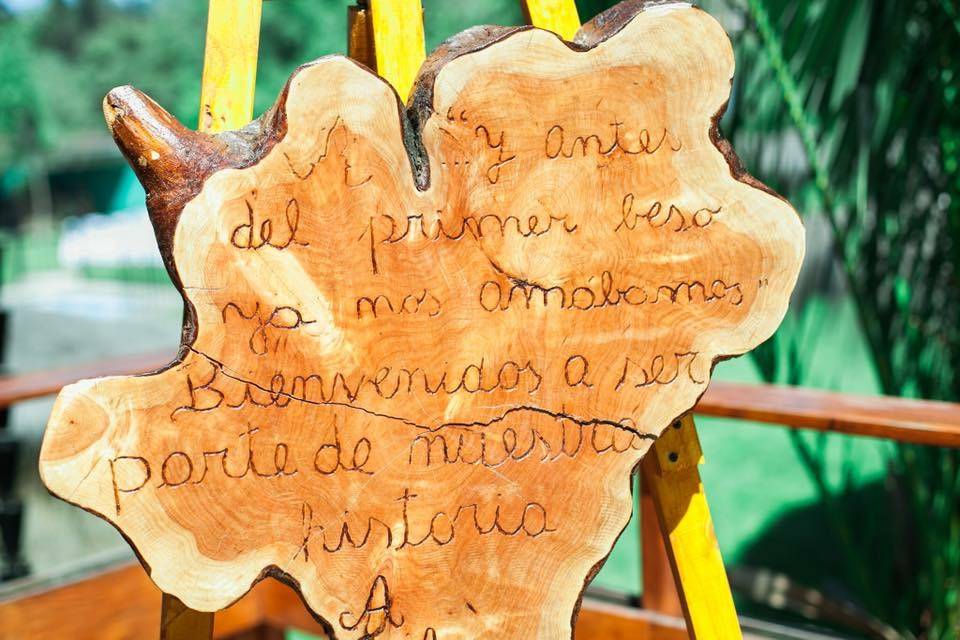 ..."Y antes
del primer beso
ya nos amábamos"
Bienvenidos a ser
parte de nuestra
historia
A